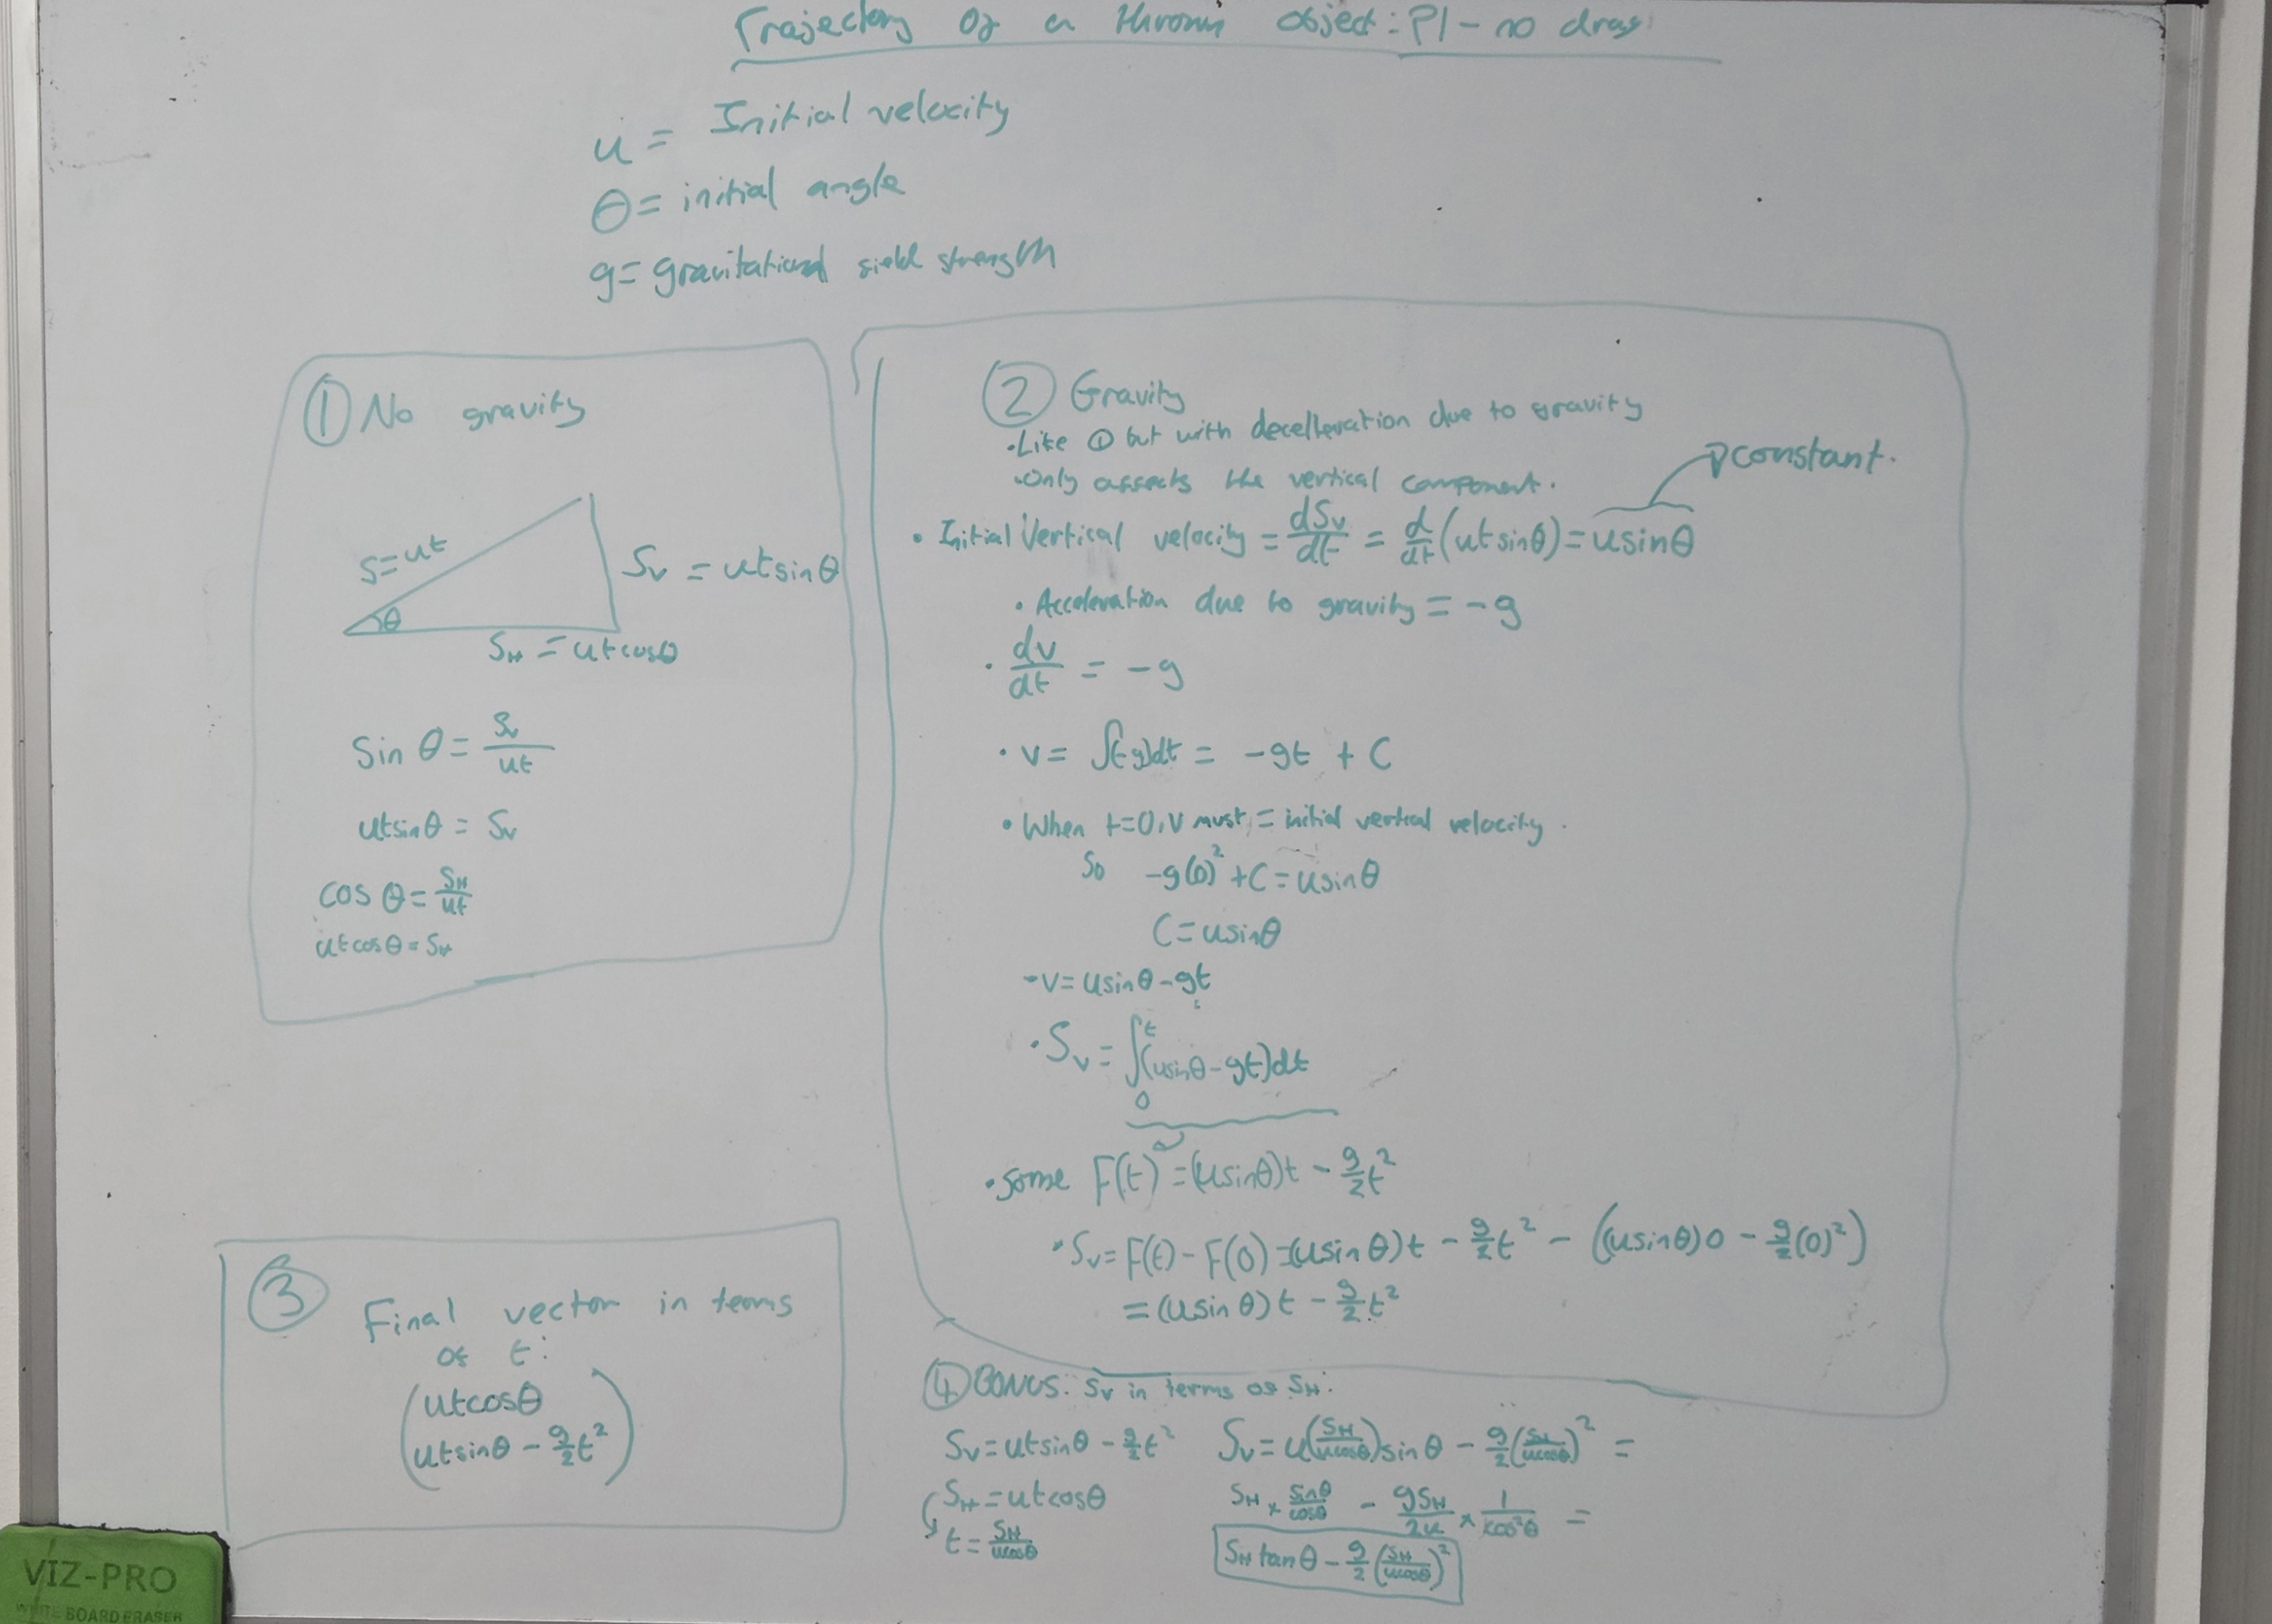 Trajectory of a thrown object: P1 - no drag
u = Initial velocity
θ = initial angle
g = gravitational field strength
① No gravity
s = ut
θ
Sv = utsinθ
SH = utcosθ
Sin θ = Sv/ut
utsinθ = Sv
cos θ = SH/ut
utcosθ = SH
② Gravity
• Like ① but with decelleration due to gravity
• Only affects the vertical component.
constant.
• Initial Vertical velocity = dSv/dt = d/dt(utsinθ) = usinθ
• Acceleration due to gravity = -g
• dv/dt = -g
• v = ∫(-g)dt = -gt + C
• When t=0, v must = initial vertical velocity.
So -g(0)² + C = usinθ
C = usinθ
• v = usinθ - gt
• Sv = ∫₀ᵗ(usinθ - gt)dt
• some F(t) = (usinθ)t - g/2 t²
• Sv = F(t) - F(0) = (usinθ)t - g/2 t² - ((usinθ)0 - g/2(0)²)
= (usinθ)t - g/2 t²
③ Final vector in terms
of t:
(utcosθ
utsinθ - g/2 t²)
④ Bonus: Sv in terms of SH:
Sv = utsinθ - g/2 t²
SH = utcosθ
t = SH/ucosθ
Sv = u(SH/ucosθ)sinθ - g/2(SH/ucosθ)² =
SH × sinθ/cosθ - gSH/2u × 1/cos²θ =
SH tanθ - g/2(SH/ucosθ)²
VIZ-PRO
WHITEBOARD ERASER